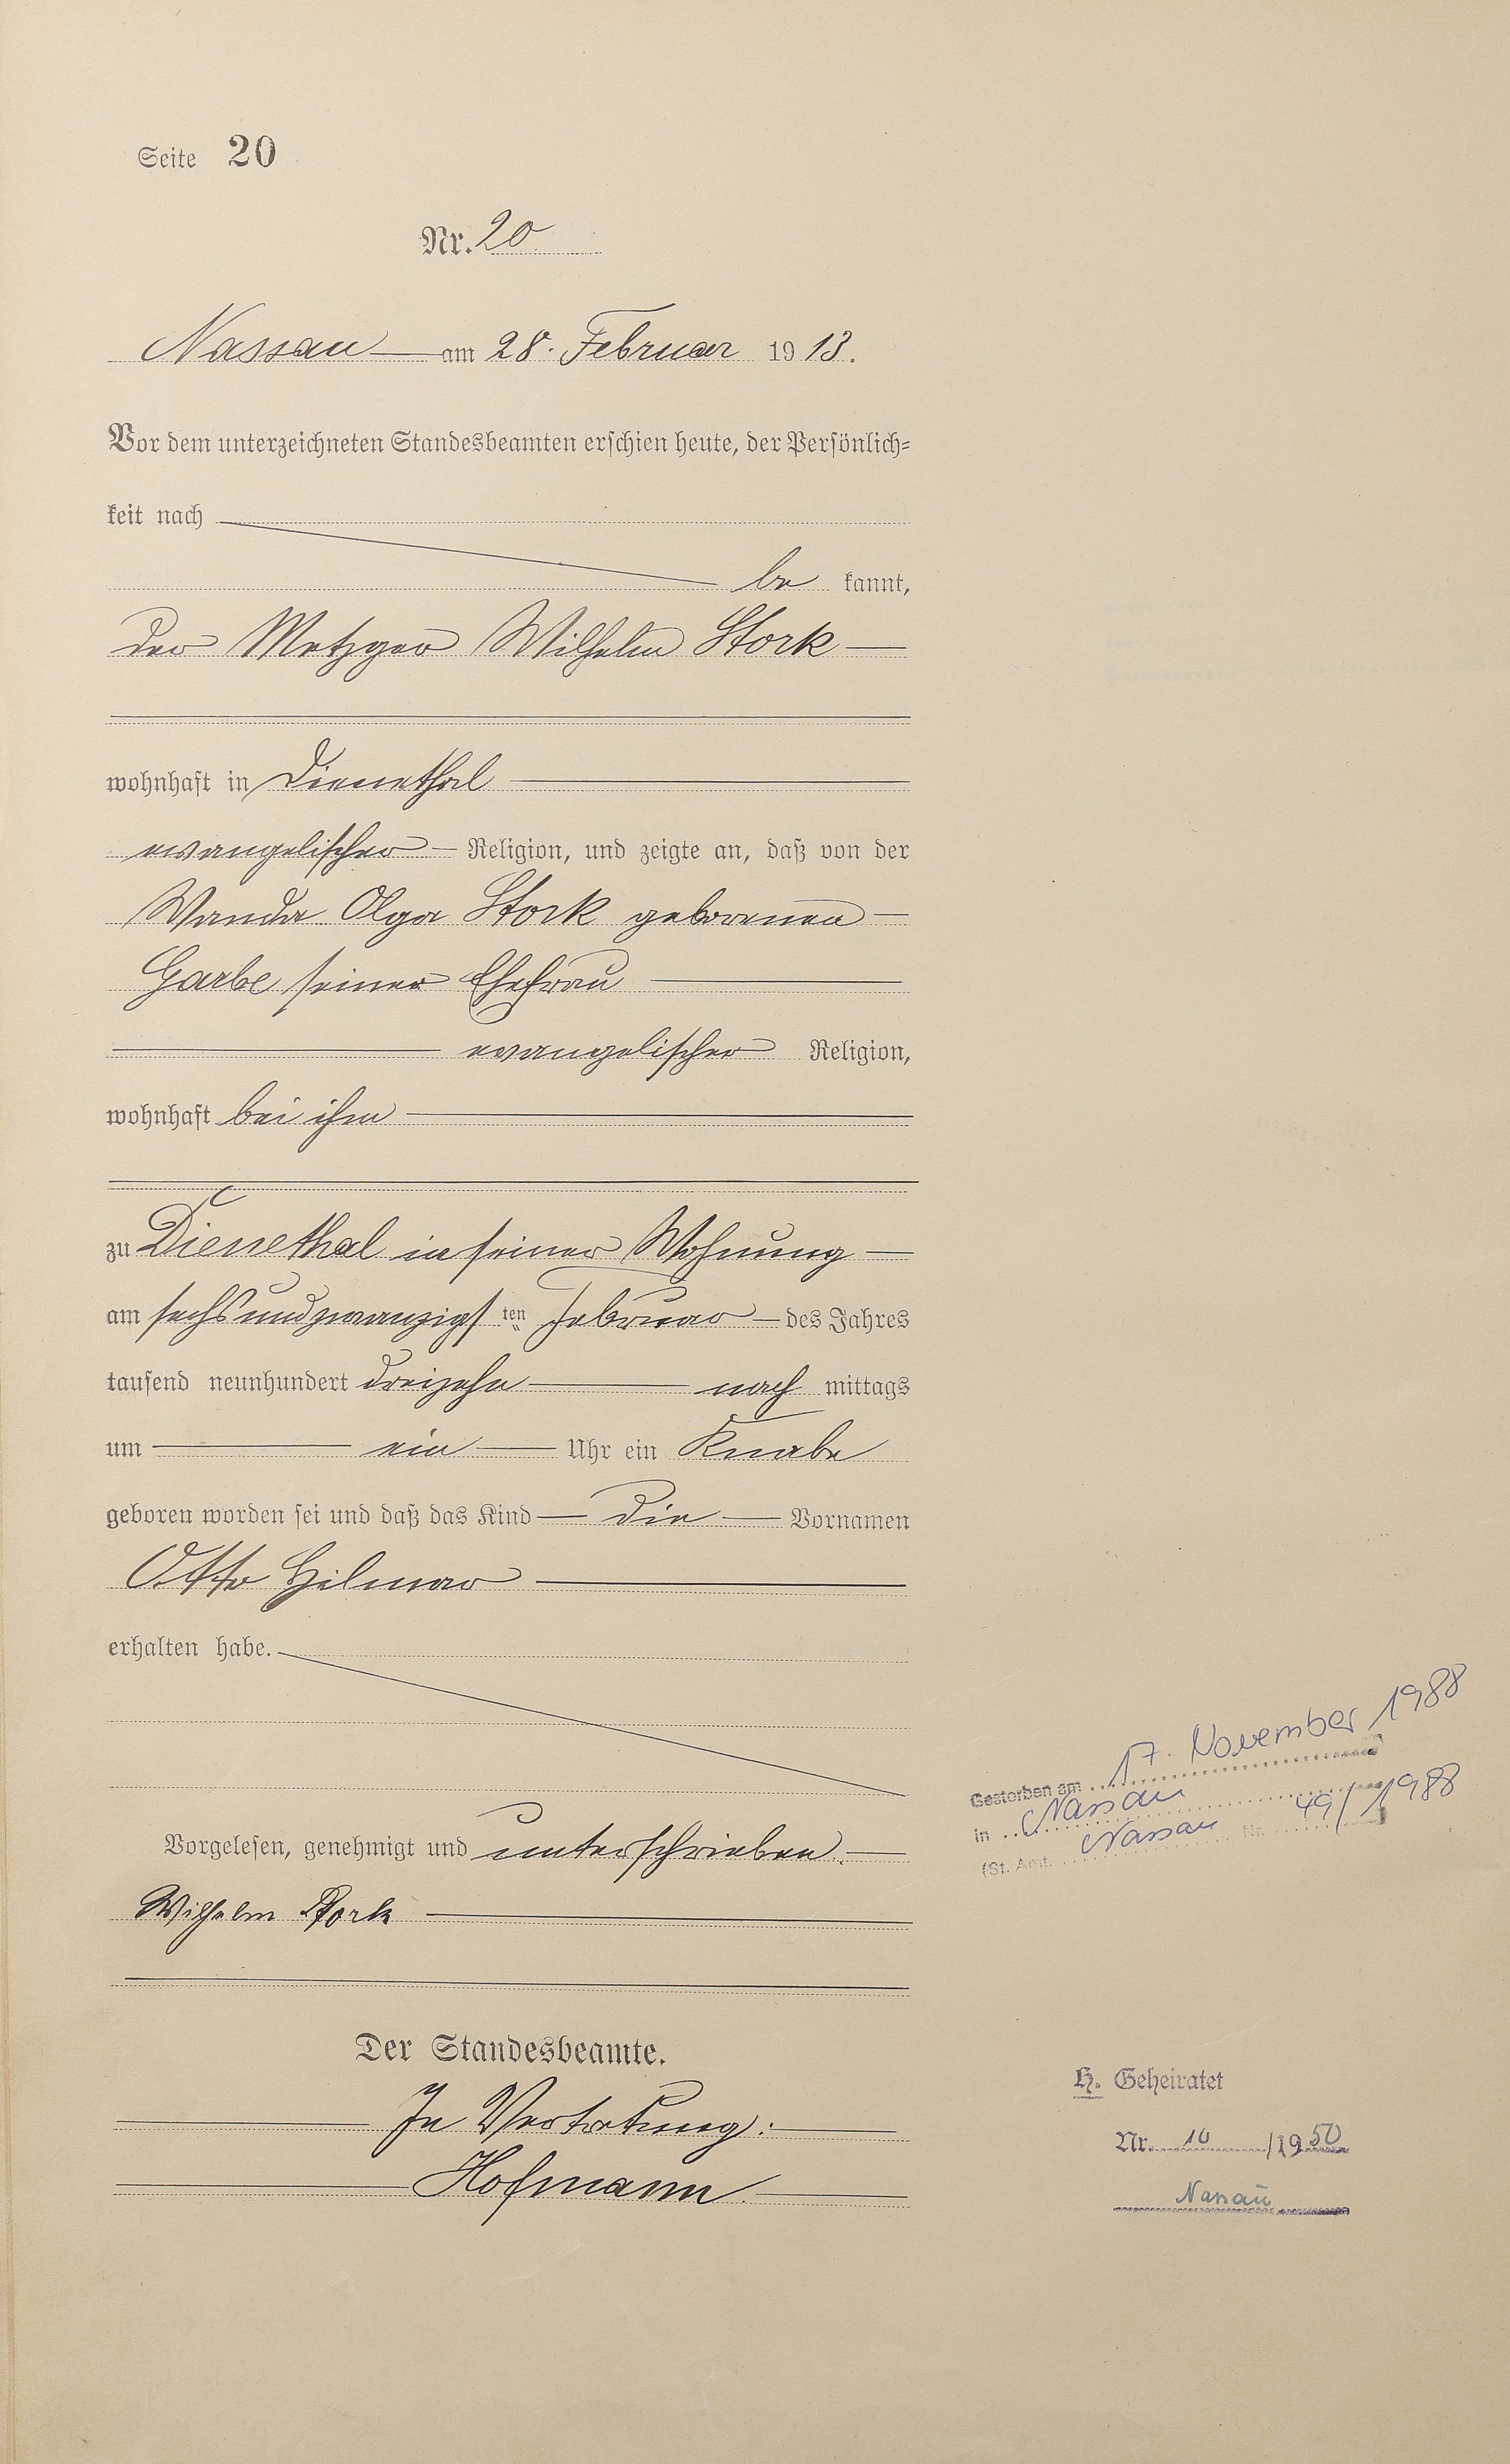 Seite 20
Nr. 20
Nassau am 28. Februar 1913.
Vor dem unterzeichneten Standesbeamten erschien heute, der Persönlich-
keit nach
be kannt,
der Metzger Wilhelm Stork
wohnhaft in Dienethal
evangelischer Religion, und zeigte an, daß von der
Wanda Olga Stork geborenen
Garbe seiner Ehefrau
evangelischer Religion,
wohnhaft bei ihm
zu Dienethal in seiner Wohnung
am sechsundzwanzigs ten Februar des Jahres
tausend neunhundert dreizehn nach mittags
um ein Uhr ein Knabe
geboren worden sei und daß das Kind die Vornamen
Otto Hilmar
erhalten habe.
Vorgelesen, genehmigt und unterschrieben.
Wilhelm Stork
Der Standesbeamte.
In Vertretung:
Hofmann
Gestorben am 17. November 1988
in Nassau
(St. Amt. Nassau Nr. 49/1988
H. Geheiratet
Nr. 10 /1950
Nassau